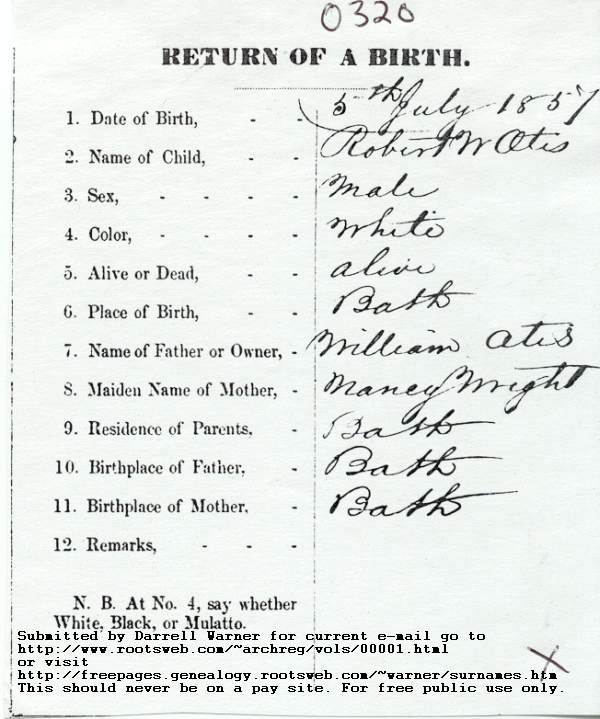 0320
RETURN OF A BIRTH.
1. Date of Birth, - - 5th July 1857
2. Name of Child, - - Robert W Otis
3. Sex, - - - - Male
4. Color, - - - - White
5. Alive or Dead, - - alive
6. Place of Birth, - - Bath
7. Name of Father or Owner, - William Otis
8. Maiden Name of Mother, - Nancy Wright
9. Residence of Parents, - Bath
10. Birthplace of Father, - Bath
11. Birthplace of Mother, - Bath
12. Remarks, - - -
N. B. At No. 4, say whether
White, Black, or Mulatto.
Submitted by Darrell Warner for current e-mail go to
http://www.rootsweb.com/~archreg/vols/00001.html
or visit
http://freepages.genealogy.rootsweb.com/~warner/surnames.htm
This should never be on a pay site. For free public use only.
X